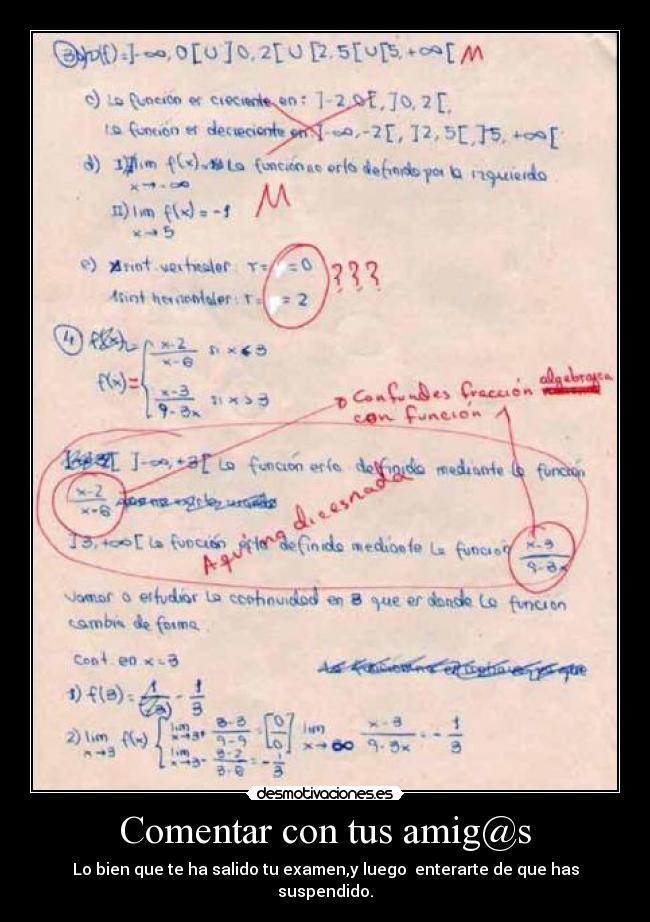 3 b) D(f) = ]-∞, 0[ U ]0, 2[ U [2, 5[ U [5, +∞[ M
c) La función es creciente en: ]-2, 0[, ]0, 2[,
La función es decreciente en: ]-∞, -2[, ]2, 5[, ]5, +∞[
d) I) lim f(x) La función no está definida por la izquierda.
x→-∞
M
II) lim f(x) = -1
x→5
e) Asint. verticales: r= =0 ???
Asint horizontales: r= = 2
4 f(x)=
x-2
x-6
si x<3
f(x)=
x-3
9-3x
si x>3
Confundes fracción algebraica
con función
]-∞, +3[ La función está definida mediante la función
x-2
x-6
Aquí no dices nada
]3, +∞[ La función está definida mediante la función x-3
9-3x
Vamos a estudiar la continuidad en 3 que es donde la función
cambia de forma.
Cont. en x=3
1) f(3) = - 1
3
2) lim f(x)
x→3
lim
x→3+
3-3
9-9
= [0/0] lim
x→∞
x-3
9-3x
= - 1
3
lim
x→3-
3-2
3-6
= - 1
3
desmotivaciones.es
Comentar con tus amig@s
Lo bien que te ha salido tu examen,y luego enterarte de que has
suspendido.